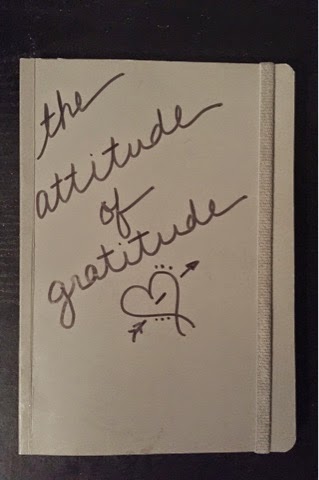 the
attitude
of
gratitude